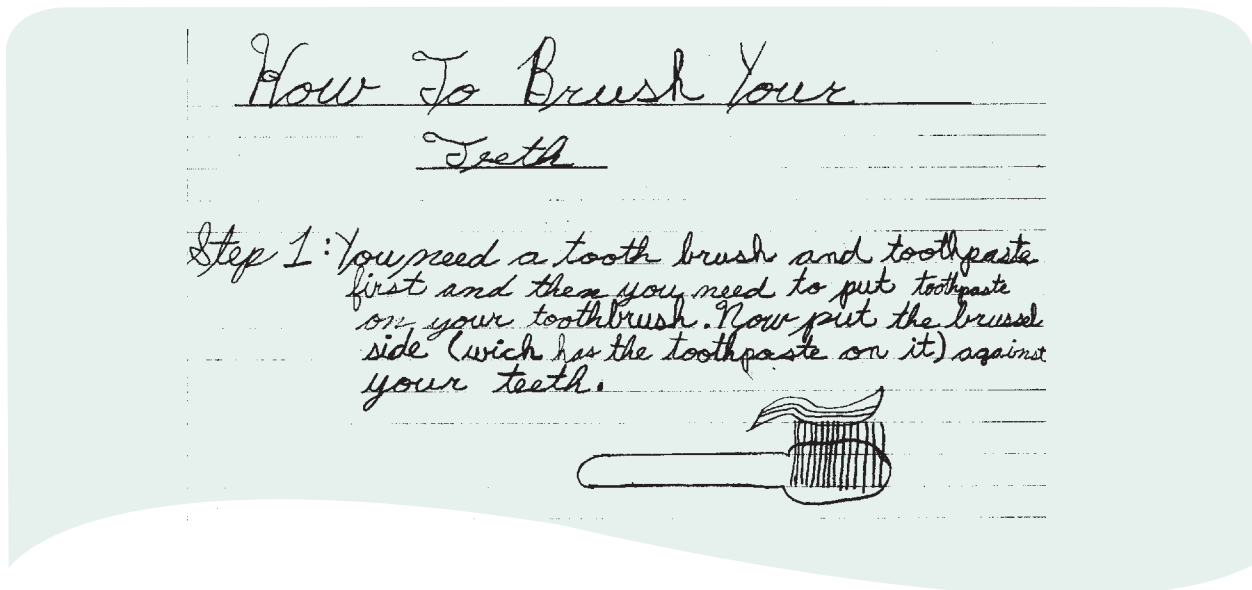 How To Brush Your
Teeth
Step 1: You need a tooth brush and toothpaste
first and then you need to put toothpaste
on your toothbrush. Now put the brussel
side (wich has the toothpaste on it) against
your teeth.